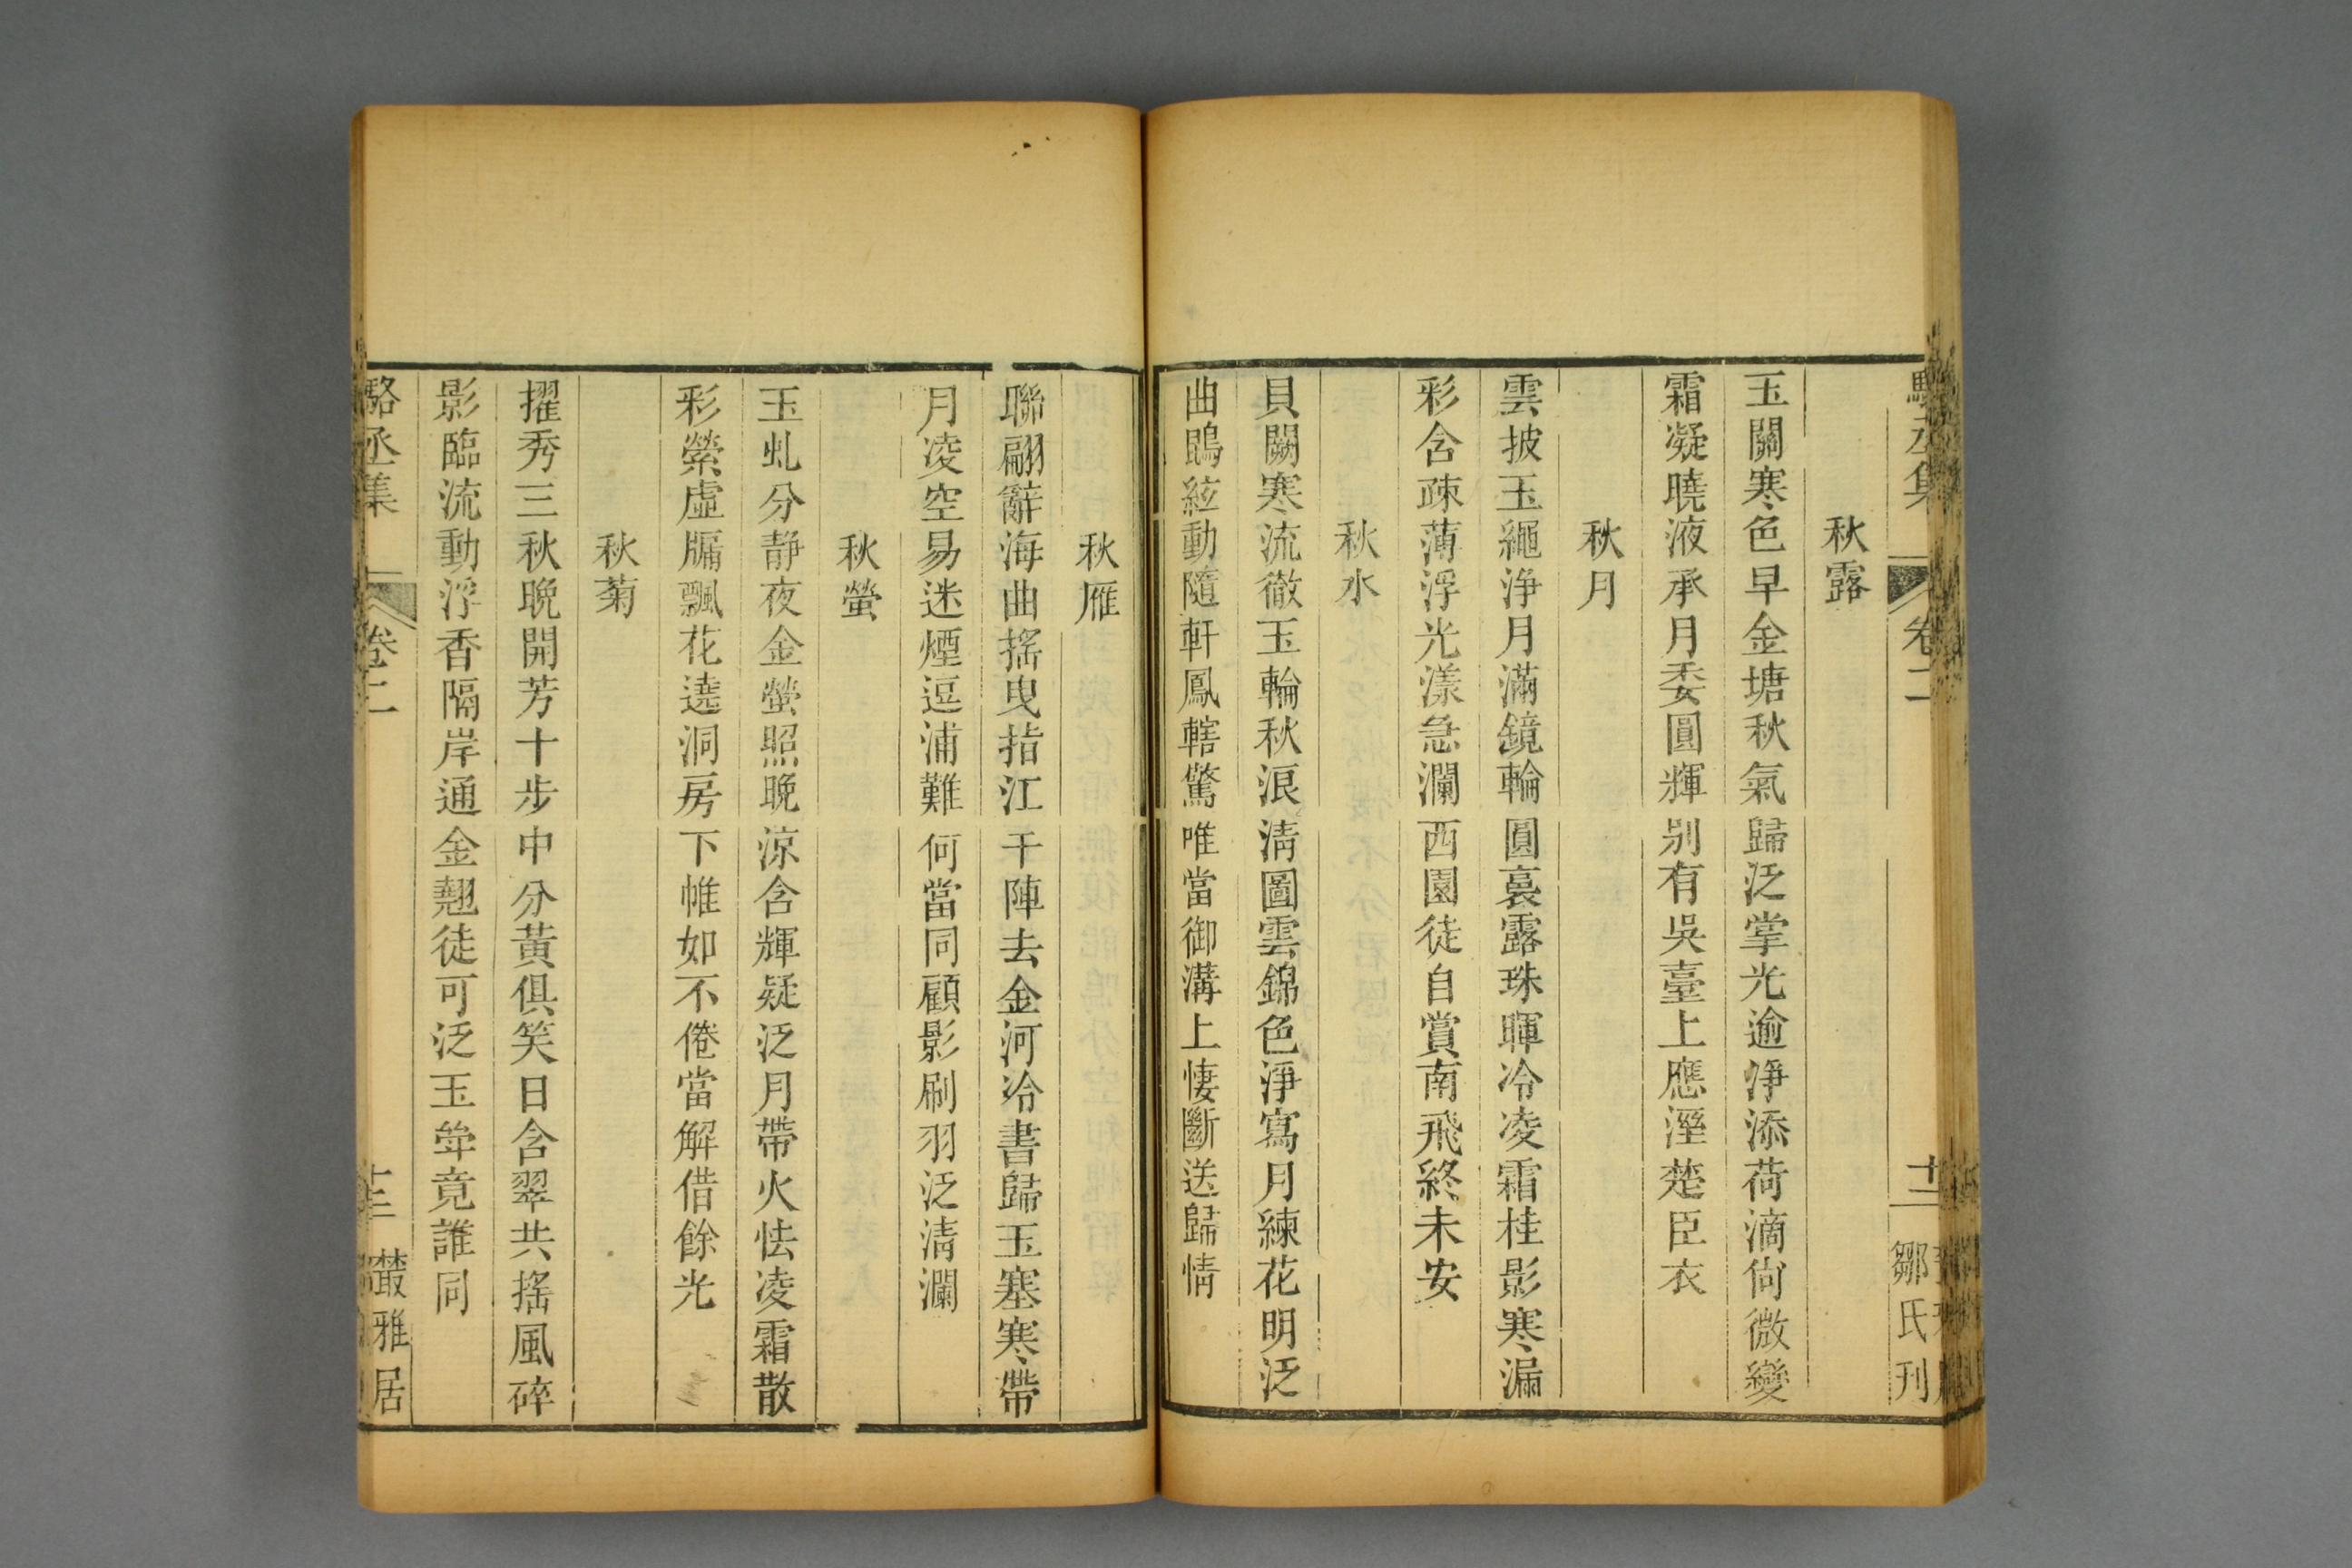 駱丞集 卷二 十二 鄒氏刊
秋露
玉關寒色早金塘秋氣歸泛掌光逾淨添荷滴尙微變
霜凝曉液承月委圓輝别有吳臺上應溼楚臣衣
秋月
雲披玉繩淨月滿鏡輪圓裛露珠暉冷凌霜桂影寒漏
彩含疎薄浮光漾急瀾西園徒自賞南飛終未安
秋水
貝闕寒流徹玉輪秋浪淸圖雲錦色淨寫月練花明泛
曲鵾絃動隨軒鳳轄驚唯當御溝上悽斷送歸情
秋雁
聯翩辭海曲搖曳指江干陣去金河冷書歸玉塞寒帶
月凌空易迷煙逗浦難何當同顧影刷羽泛淸瀾
秋螢
玉虬分靜夜金螢照晚涼含輝疑泛月帶火怯凌霜散
彩縈虛牖飄花遶洞房下帷如不倦當解借餘光
秋菊
擢秀三秋晚開芳十步中分黃俱笑日含翠共搖風碎
影臨流動浮香隔岸通金翹徒可泛玉斝竟誰同
駱丞集 卷二 十三 叢雅居